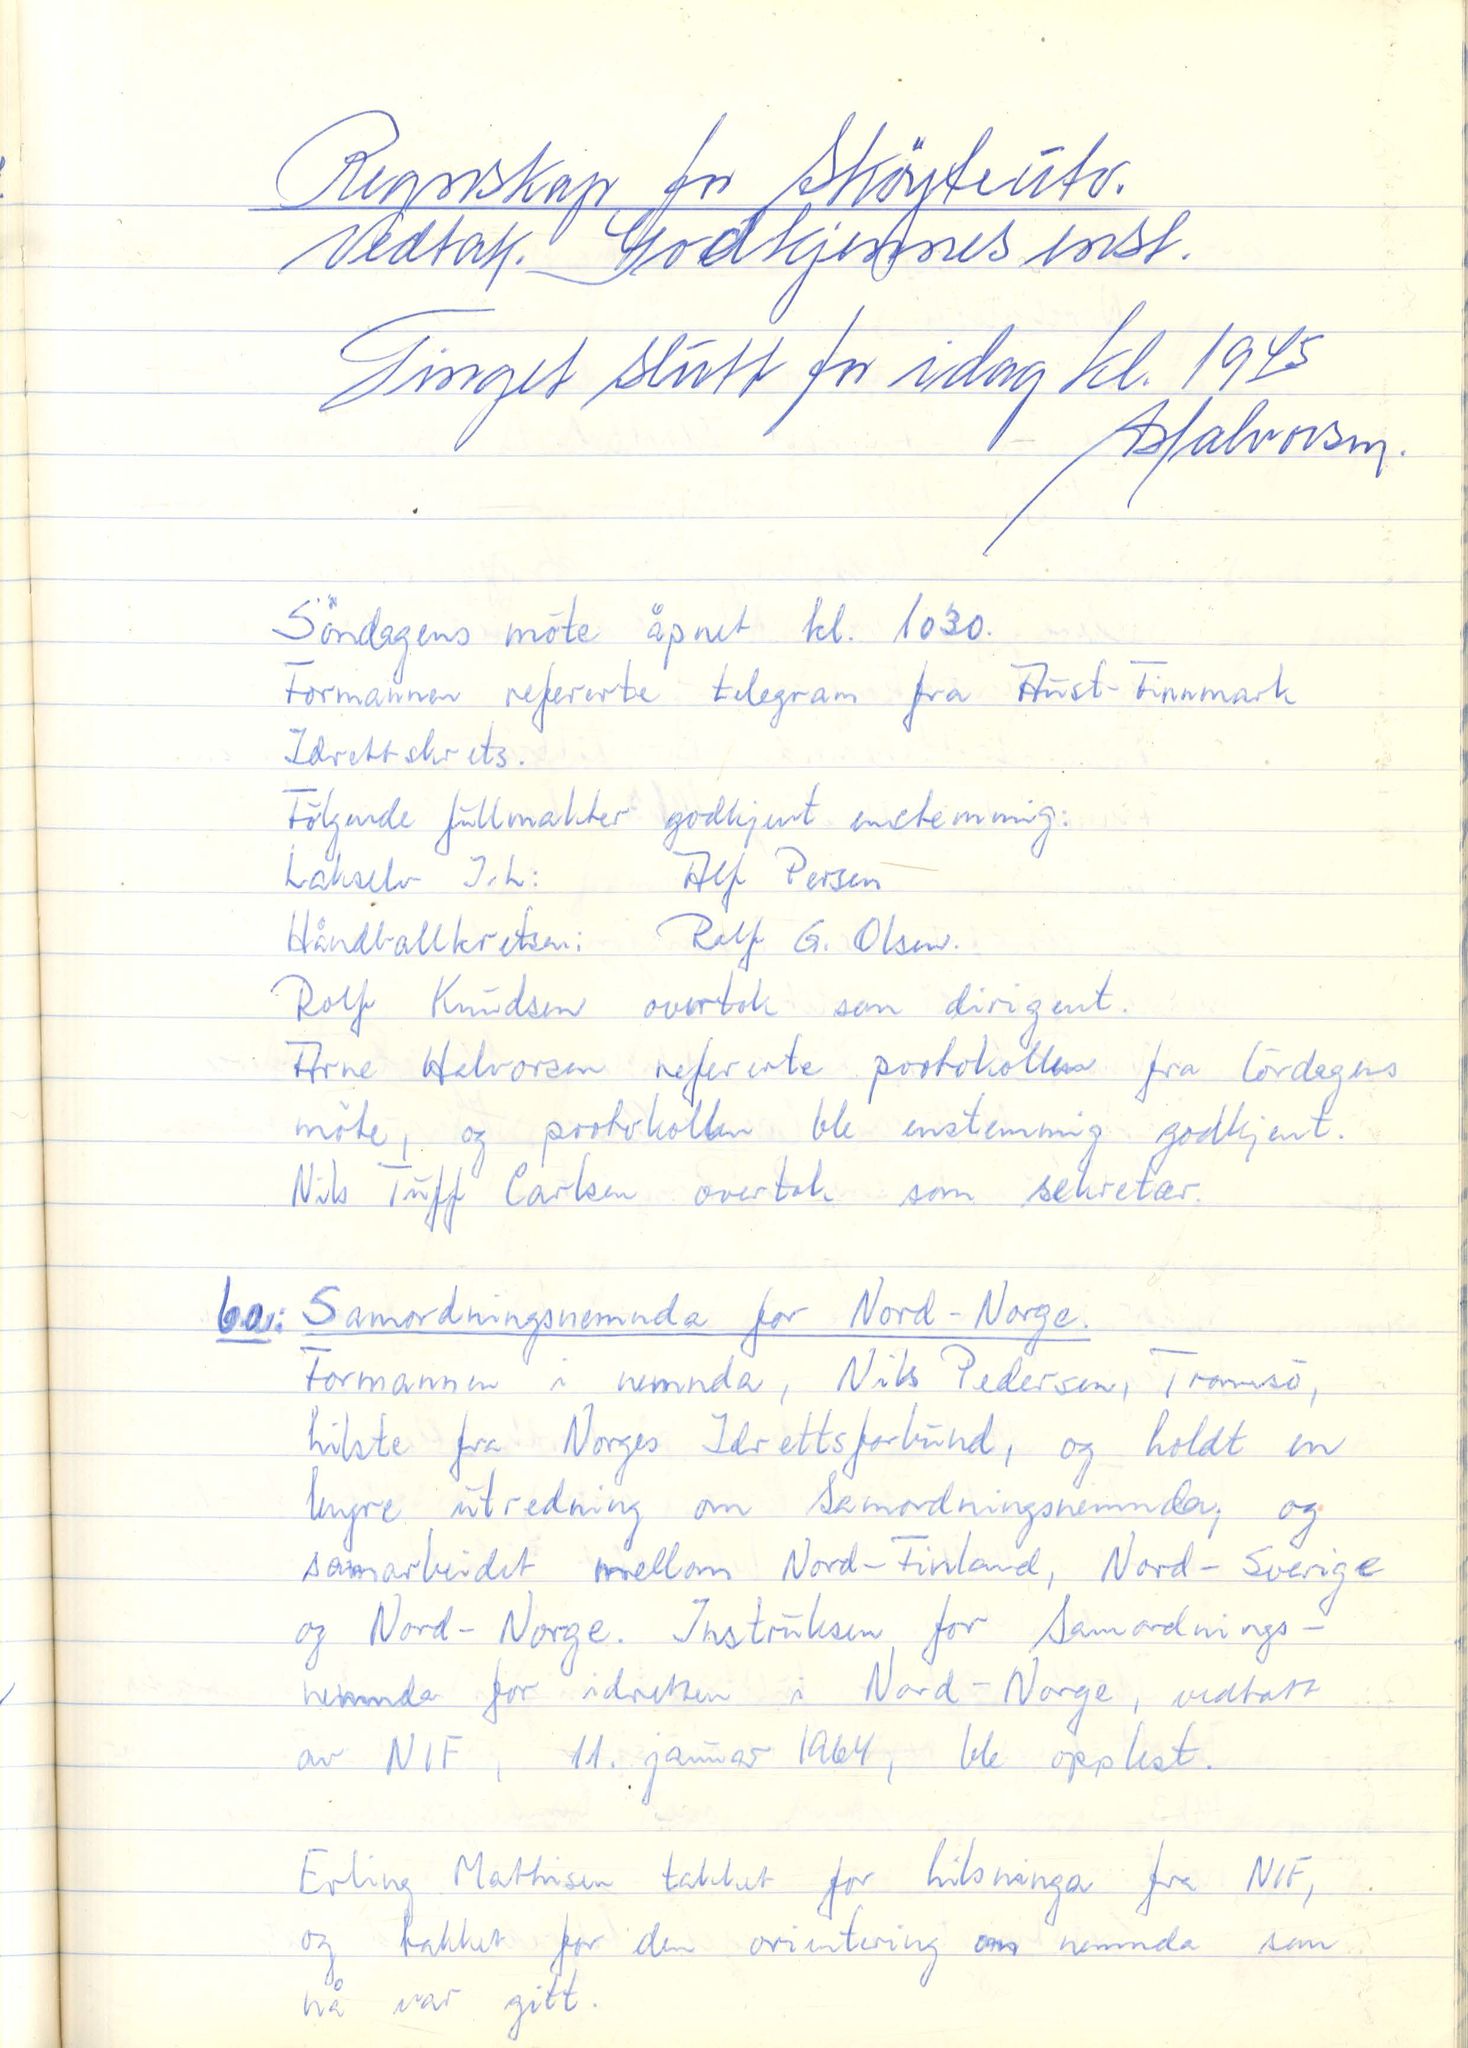 Regnskap for Skøyteutv.
Vedtak. Godkjennes enst.
Tinget slutt for idag kl. 1945
AHalvorsen.
Söndagens möte åpnet kl. 1030.
Formannen refererte telegram fra Aust-Finnmark
Idrettskrets.
Fölgende fullmakter godkjent enstemmig:
Lakselv I.L: Alf Persen
Håndballkretsen: Rolf G. Olsen.
Rolf Knudsen overtok som dirigent.
Arne Halvorsen refererte protokollen fra lördagens
möte, og protokollen ble enstemmig godkjent.
Nils Tuff Carlsen overtok som sekretær.
6a: Samordningsnemnda for Nord-Norge.
Formannen i nemnda, Nils Pedersen, Tromsö,
hilste fra Norges Idrettsforbund, og holdt en
lengre utredning om Samordningsnemnda, og
samarbeidet mellom Nord-Finland, Nord-Sverige
og Nord-Norge. Instruksen for Samordnings-
nemnda for idretten i Nord-Norge, vedtatt
av NIF, 11. januar 1964, ble opplest.
Erling Mathisen takket for hilsninga fra NIF,
og takket for den orientering om nemnda som
nå var gitt.